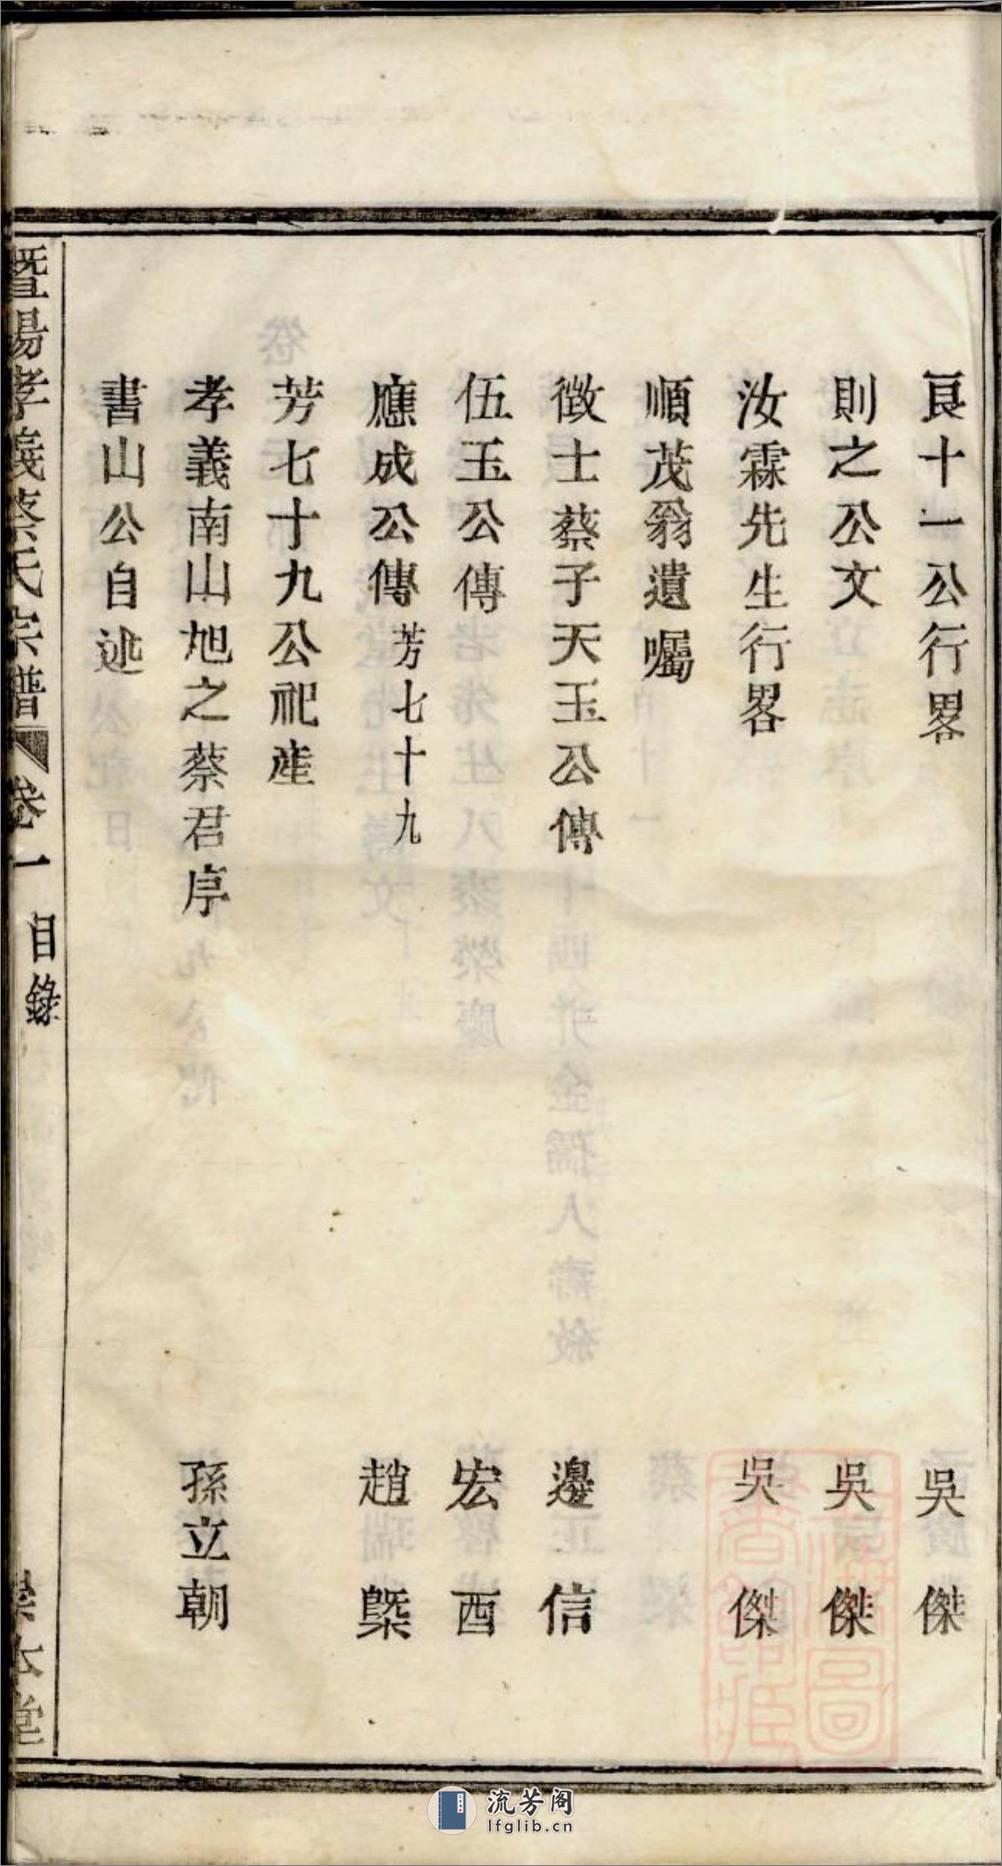 良十一公行畧 吳傑
則之公文 吳傑
汝霖先生行畧 吳傑
順茂翁遺囑
徵士蔡子天玉公傳 邊信
伍玉公傳 宏酉
應成公傳 芳七十九 趙瑞槩
芳七十九公祀產
孝義南山旭之蔡君序 孫立朝
書山公自述
暨陽孝義蔡氏宗譜 卷一 目錄 崇本堂
流芳阁
lfglib.cn